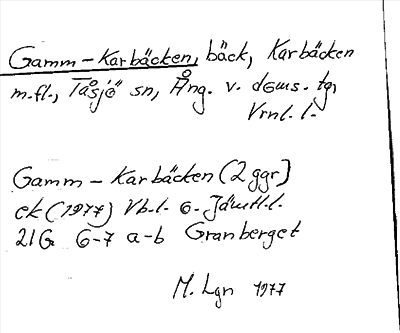 Gamm-Karbäcken, bäck, Karbäcken
m.fl., Tåsjö sn, Ång. v. doms. tg,
Vrnl. l.
Gamm-Karbäcken (2 ggr)
ek (1977) Vb.l. o. Jämtl.l.
21G 6-7 a-b Granberget
M. Lgn 1977